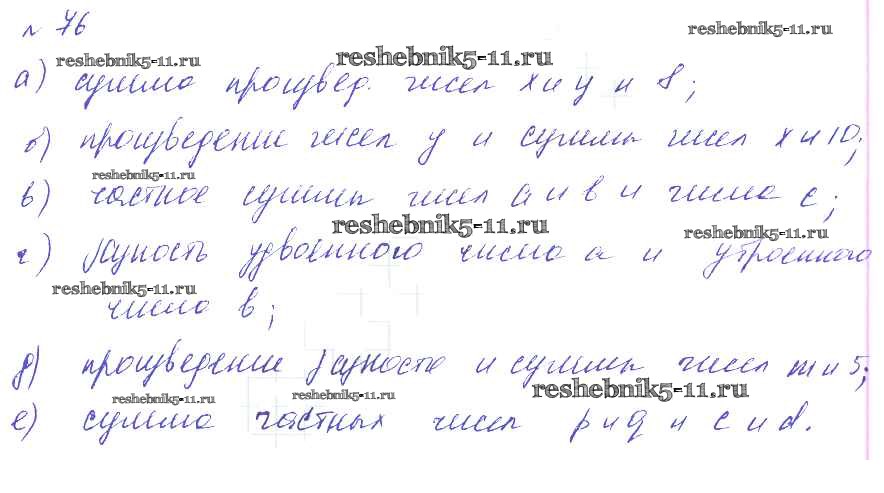 № 76
reshebnik5-11.ru
reshebnik5-11.ru reshebnik5-11.ru
а) сумма произвед. чисел x и y и 8;
б) произведение чисел y и суммы чисел x и 10;
reshebnik5-11.ru
в) частное суммы чисел a и b и числа c;
reshebnik5-11.ru reshebnik5-11.ru
г) разность удвоенного числа a и утроенного
reshebnik5-11.ru
числа b;
д) произведение разности и суммы чисел m и 5;
reshebnik5-11.ru reshebnik5-11.ru reshebnik5-11.ru
е) сумма частных чисел p и q и c и d.